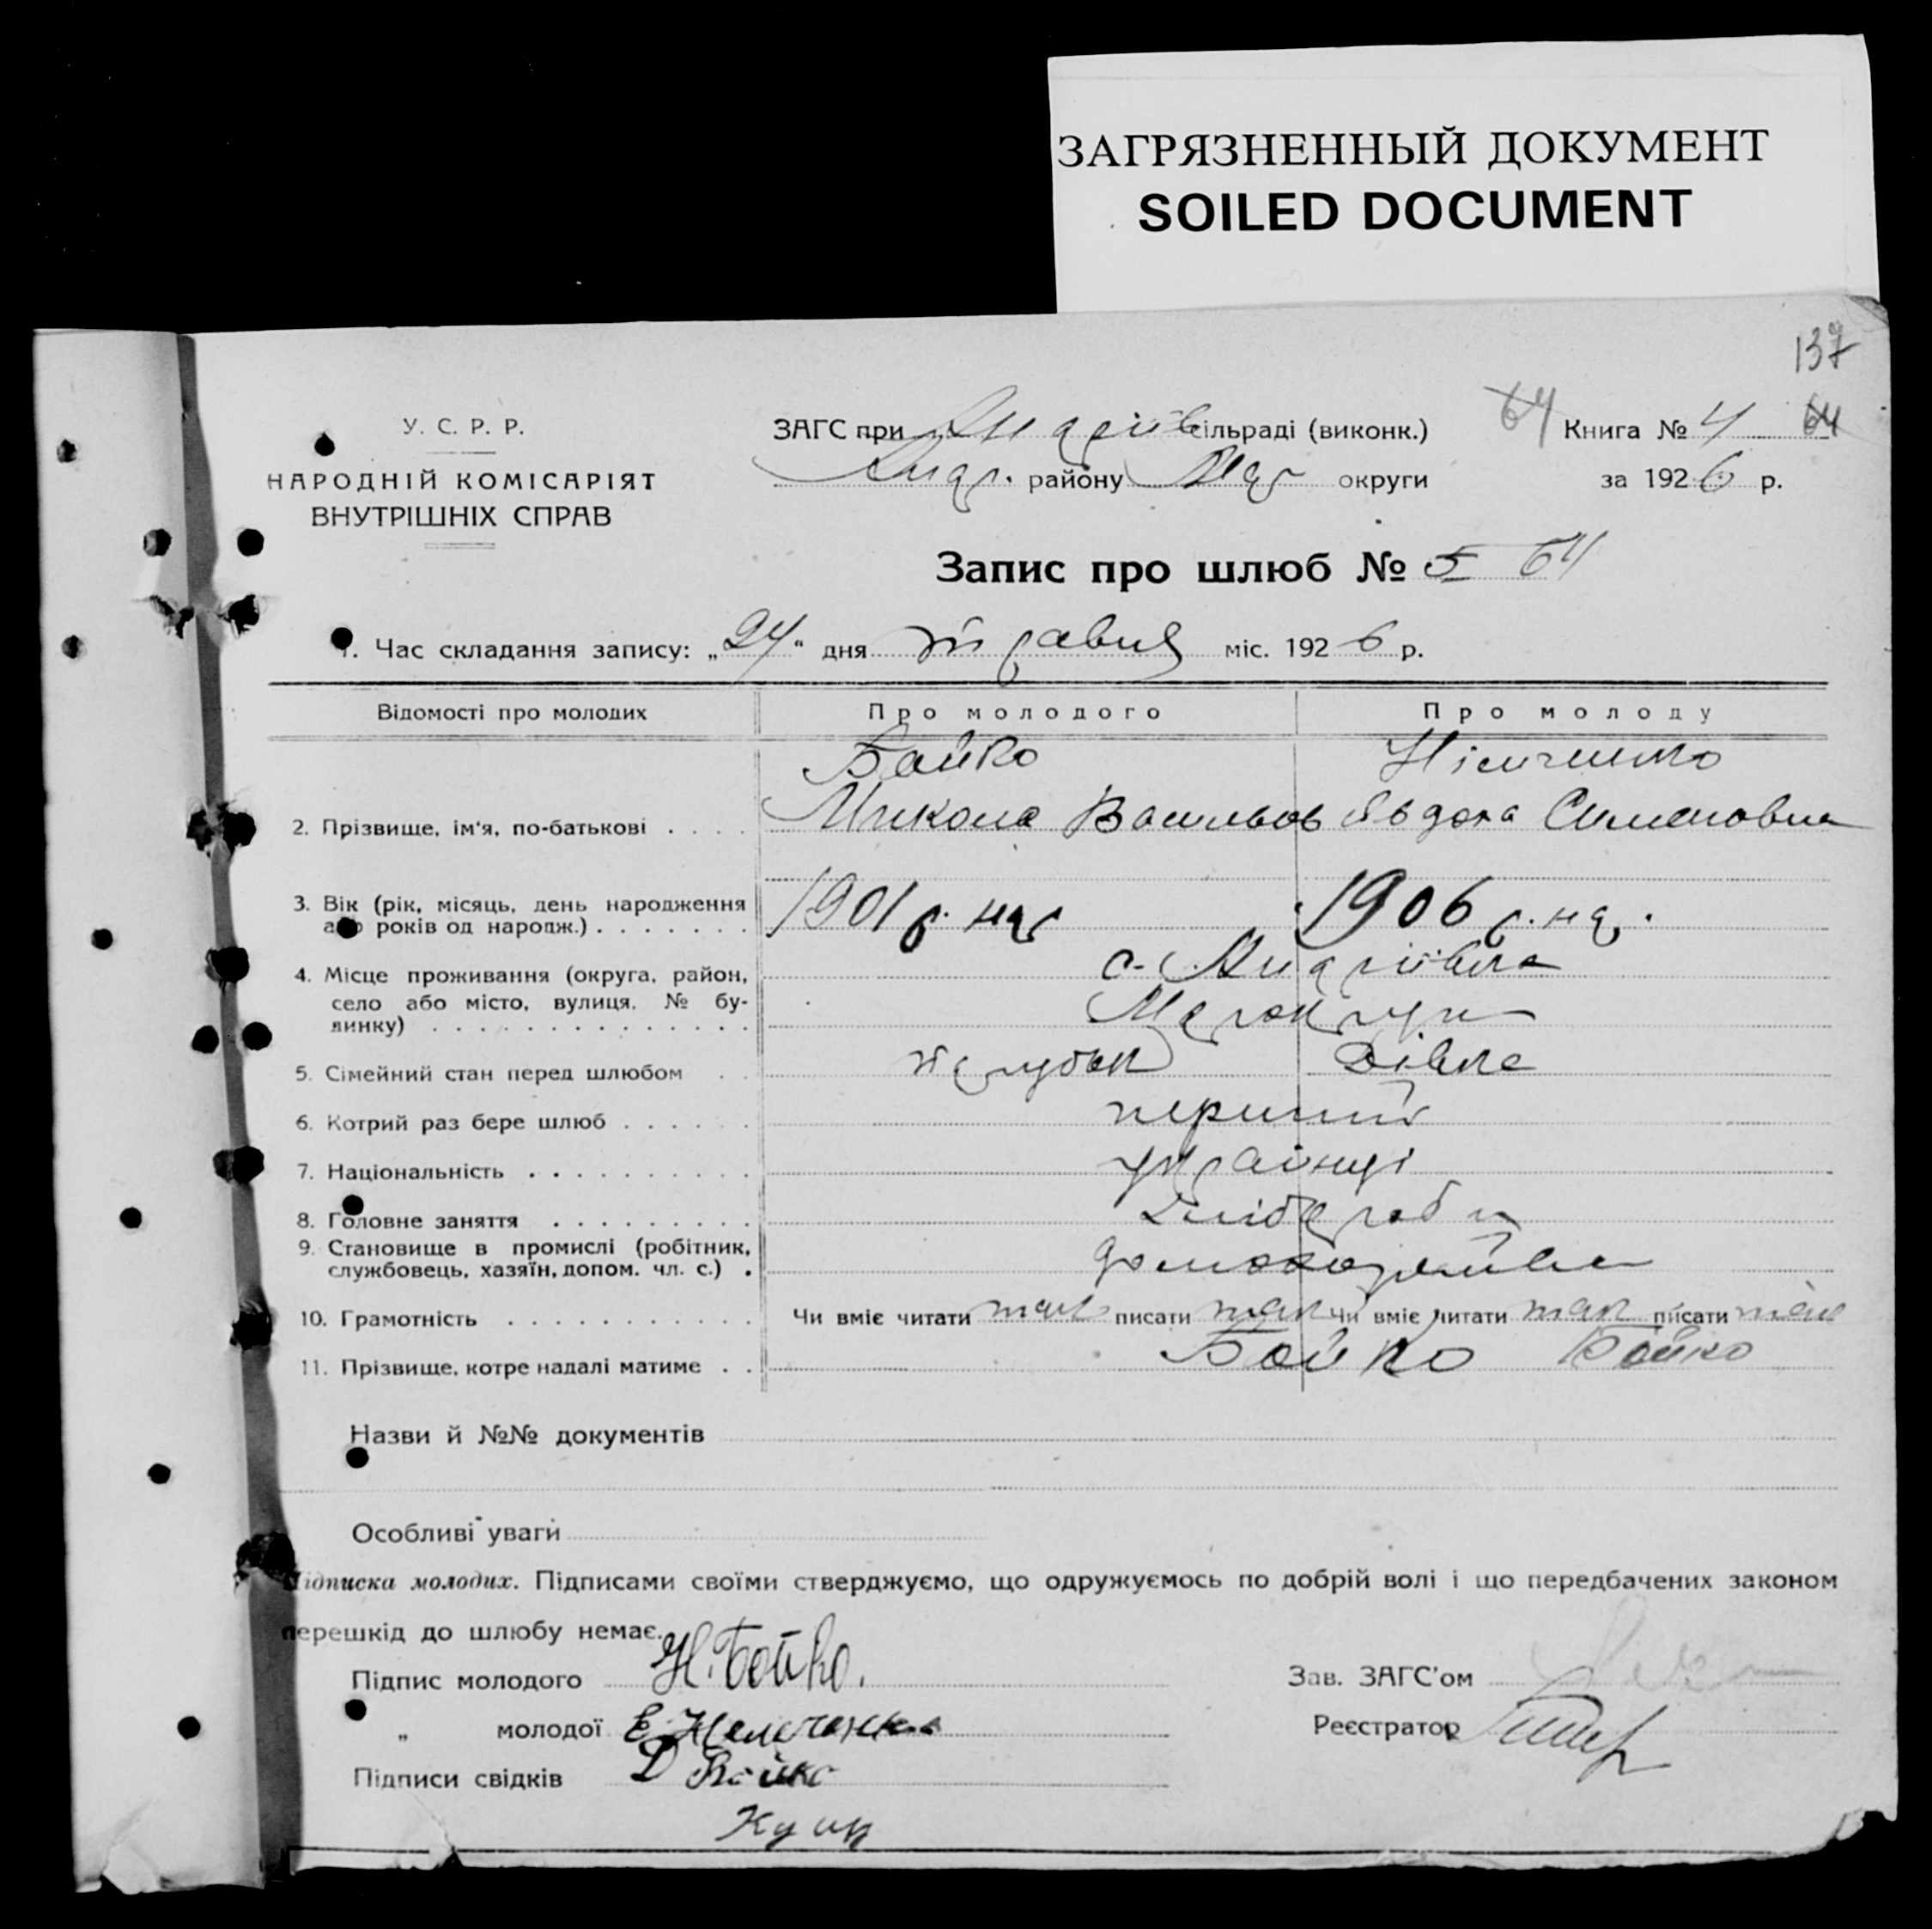 ЗАГРЯЗНЕННЫЙ ДОКУМЕНТ
SOILED DOCUMENT
137
У. С. Р. Р.
НАРОДНІЙ КОМІСАРІЯТ
ВНУТРІШНІХ СПРАВ
ЗАГС при Андріїв сільраді (виконк.)
Андр. району Мар округи
64 Книга № 4 64
за 1926 р.
Запис про шлюб № 5 64
1. Час складання запису: „24“ дня травня міс. 1926 р.
Відомості про молодих Про молодого Про молоду
Бойко Німченко
2. Прізвище, ім'я, по-батькові . . . . Микола Васильов Явдоха Семеновна
3. Вік (рік, місяць, день народження
або років од народж.) . . . . . . . 1901 р. нар 1906 р. нар.
4. Місце проживання (округа, район,
село або місто, вулиця, № бу-
динку) . . . . . . . . . . . . . .
с. Андріївка
5. Сімейний стан перед шлюбом . . парубок дівка
6. Котрий раз бере шлюб . . . . . . перший
7. Національність . . . . . . . . . . українці
8. Головне заняття . . . . . . . . . хлібороби
9. Становище в промислі (робітник,
службовець, хазяїн, допом. чл. с.) .
10. Грамотність . . . . . . . . . . . Чи вміє читати так писати так Чи вміє читати так писати так
11. Прізвище, котре надалі матиме . . Бойко Бойко
Назви й №№ документів
Особливі уваги
Підписка молодих. Підписами своїми стверджуємо, що одружуємось по добрій волі і що передбачених законом
перешкід до шлюбу немає.
Підпис молодого Н. Бойко.
„ молодої Е Немченко
Підписи свідків Д Бойко
Зав. ЗАГС'ом
Реєстратор